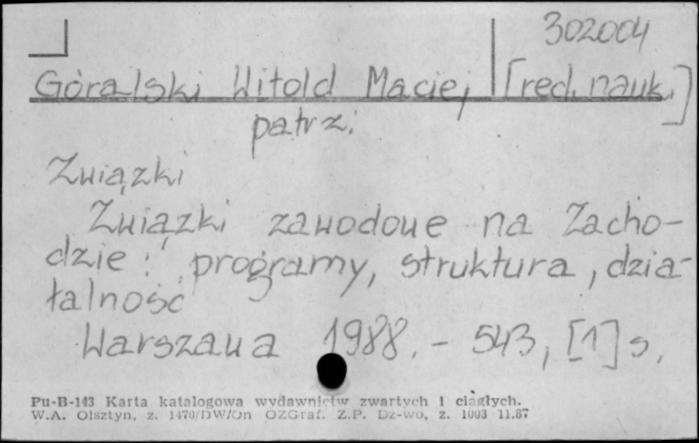 302004
Góralski Witold Maciej [red. nauk.]
patrz:
Związki
Związki zawodowe na Zacho-
dzie : programy, struktura, dzia-
łalność
Warszawa 1988. - 543, [1] s.
Pu-B-143 Karta katalogowa wydawnictw zwartych i ciągłych.
W.A. Olsztyn, z. 1470/DW/On OZGraf. Z.P. Dz-wo, z. 1003 11.87